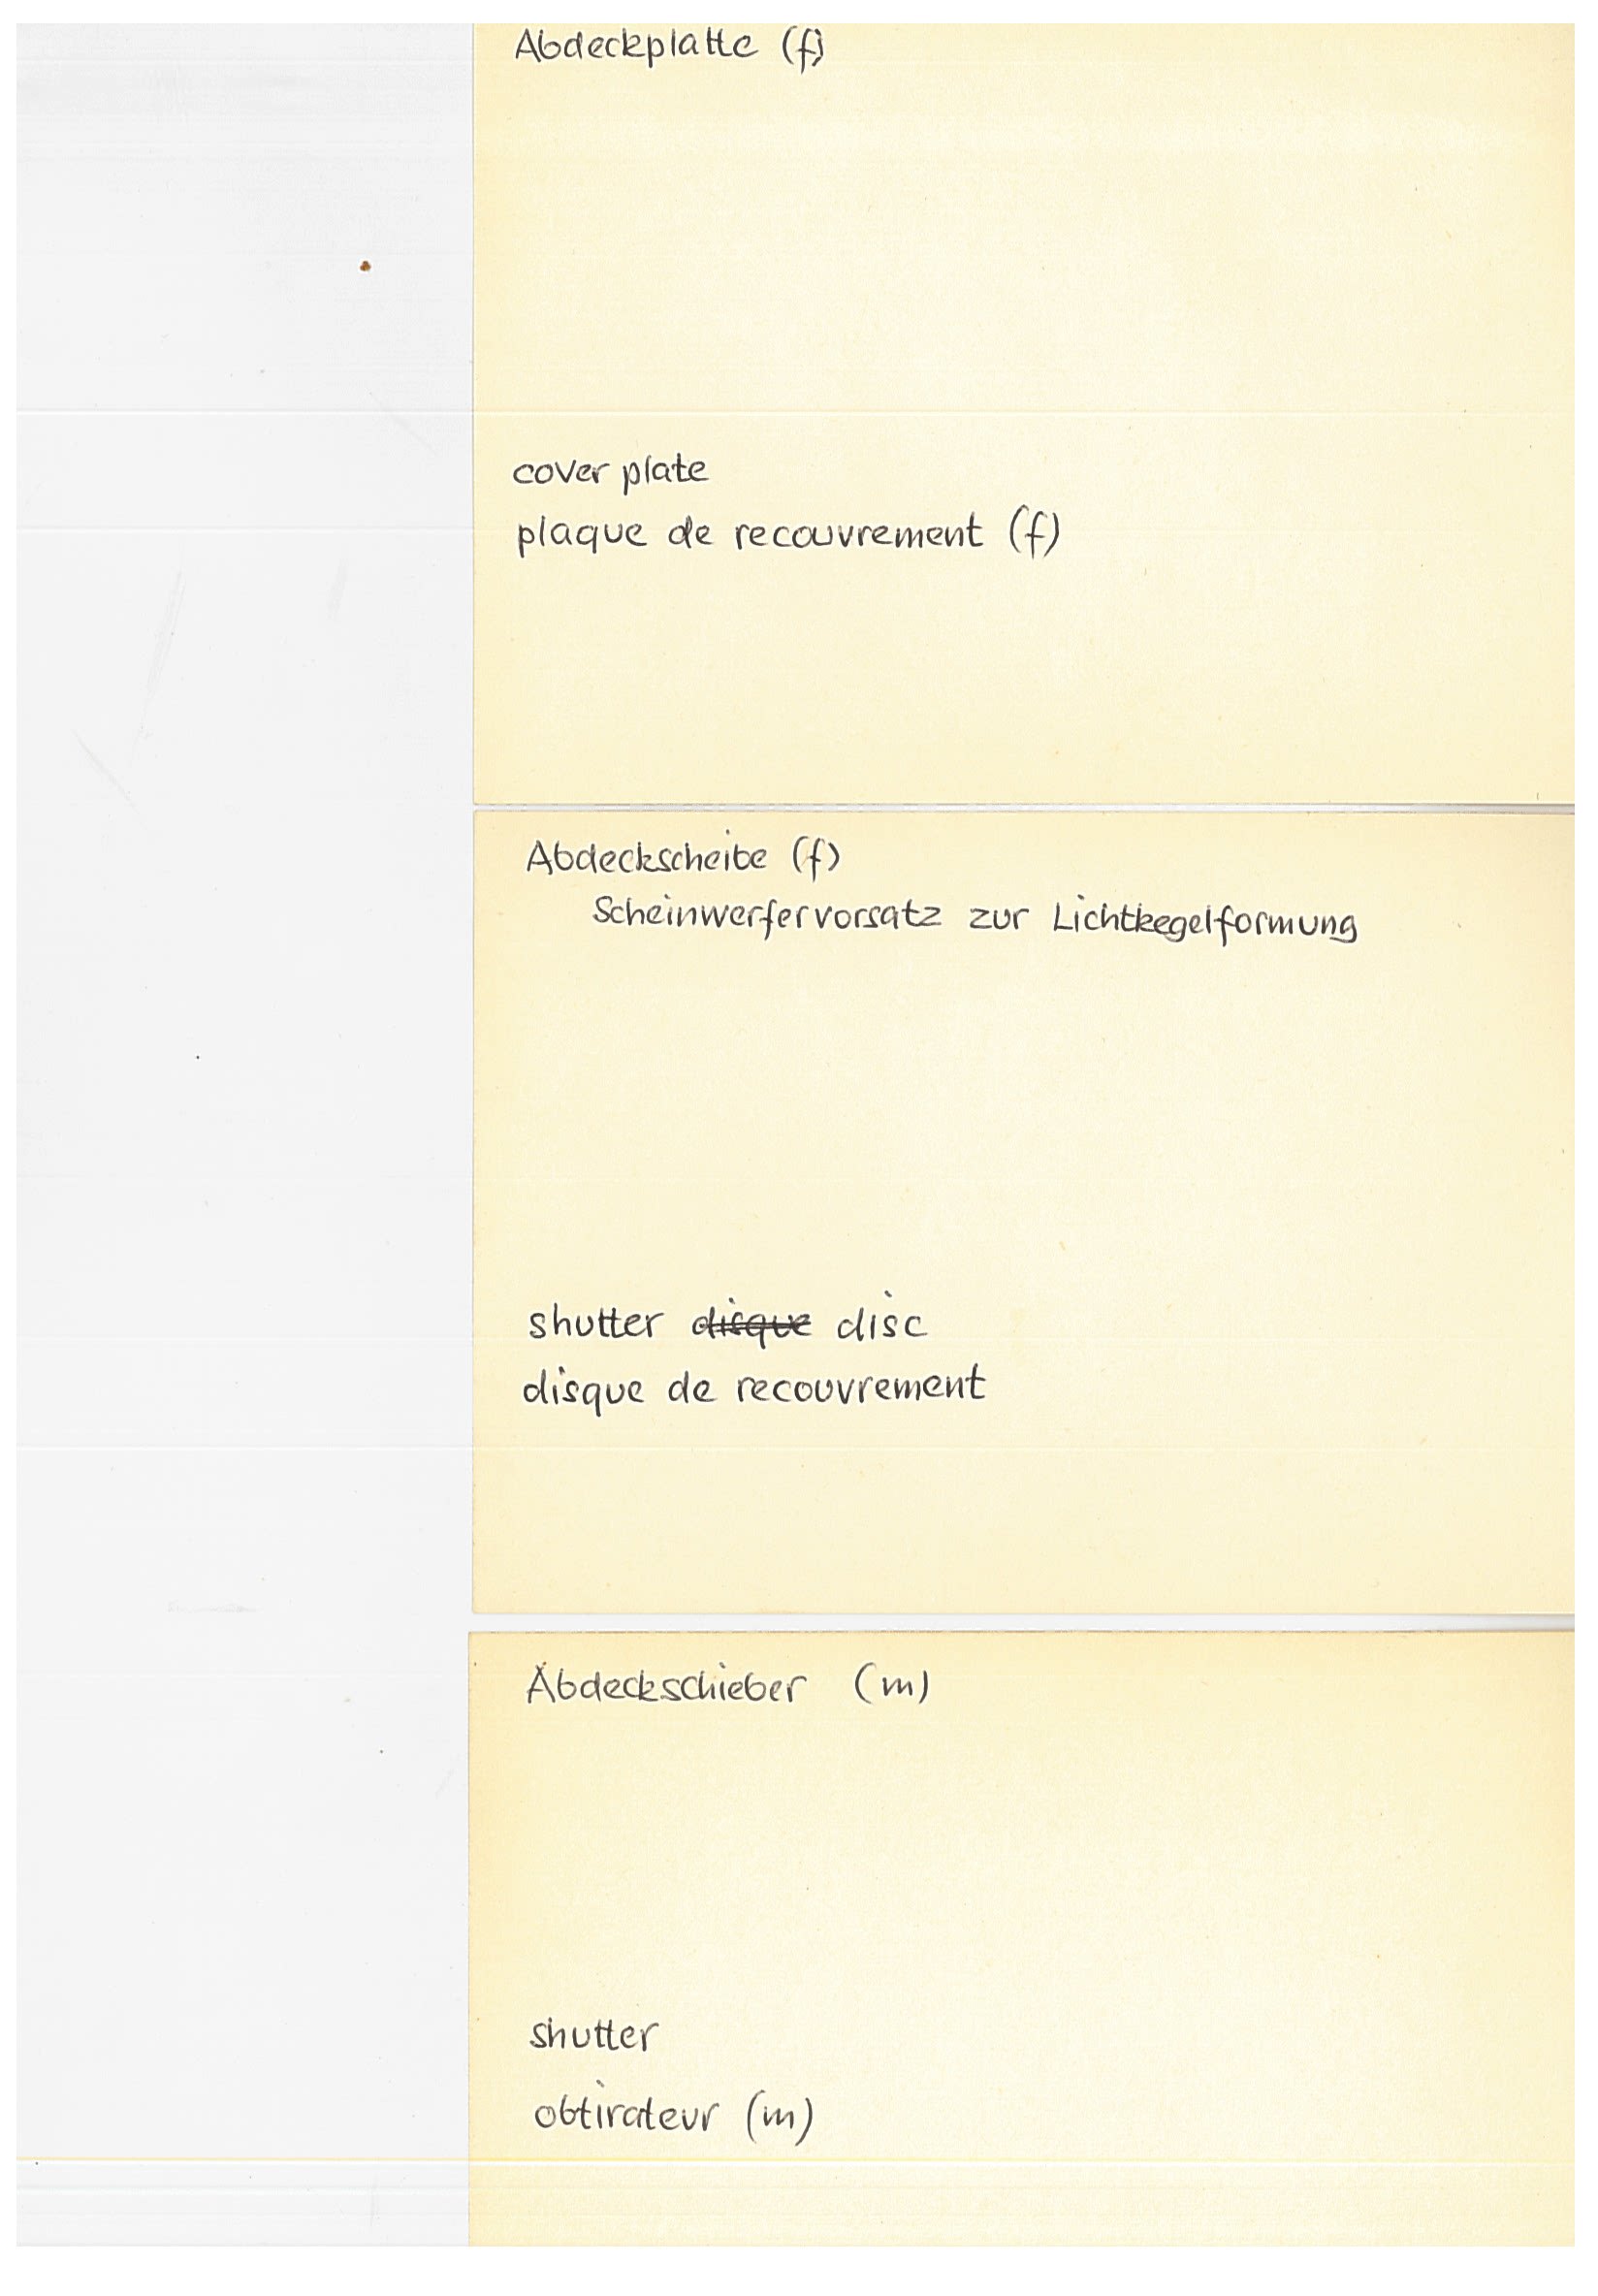 Abdeckplatte (f)
cover plate
plaque de recouvrement (f)
Abdeckscheibe (f)
Scheinwerfervorsatz zur Lichtkegelformung
shutter disque disc
disque de recouvrement
Abdeckschieber (m)
shutter
obtirateur (m)